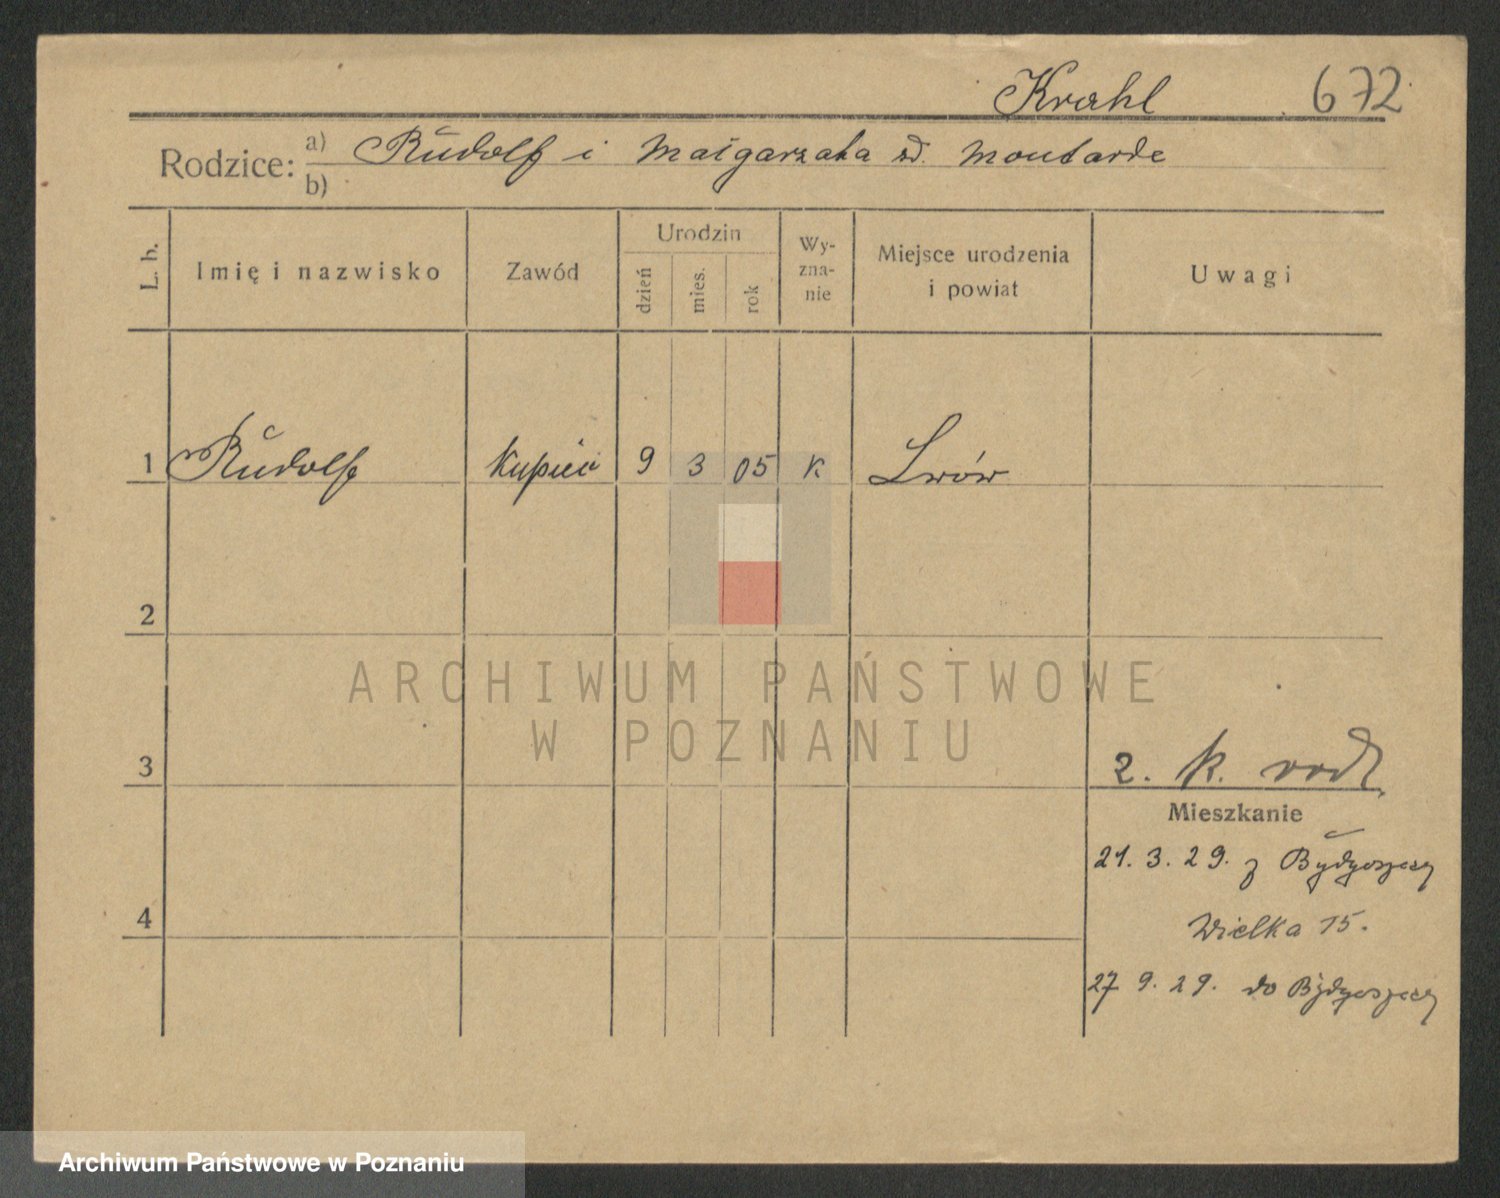 Krahl 672
Rodzice: a) Rudolf i Małgarzata zd. Moutarde
b)
L. b. Imię i nazwisko Zawód Urodzin dzień mies. rok Wyznanie Miejsce urodzenia i powiat Uwagi
1 Rudolf Kupiec 9 3 05 K Lwów
2
ARCHIWUM PAŃSTWOWE
W POZNANIU
3 2. K.
Mieszkanie
21. 3. 29. z Bydgoszczy
4 Wielka 15.
27 9. 29. do Bydgoszczy
Archiwum Państwowe w Poznaniu